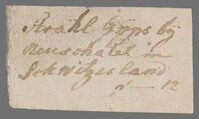 Strahl Gÿps bÿ
Neuschatel in
Schwitzerland